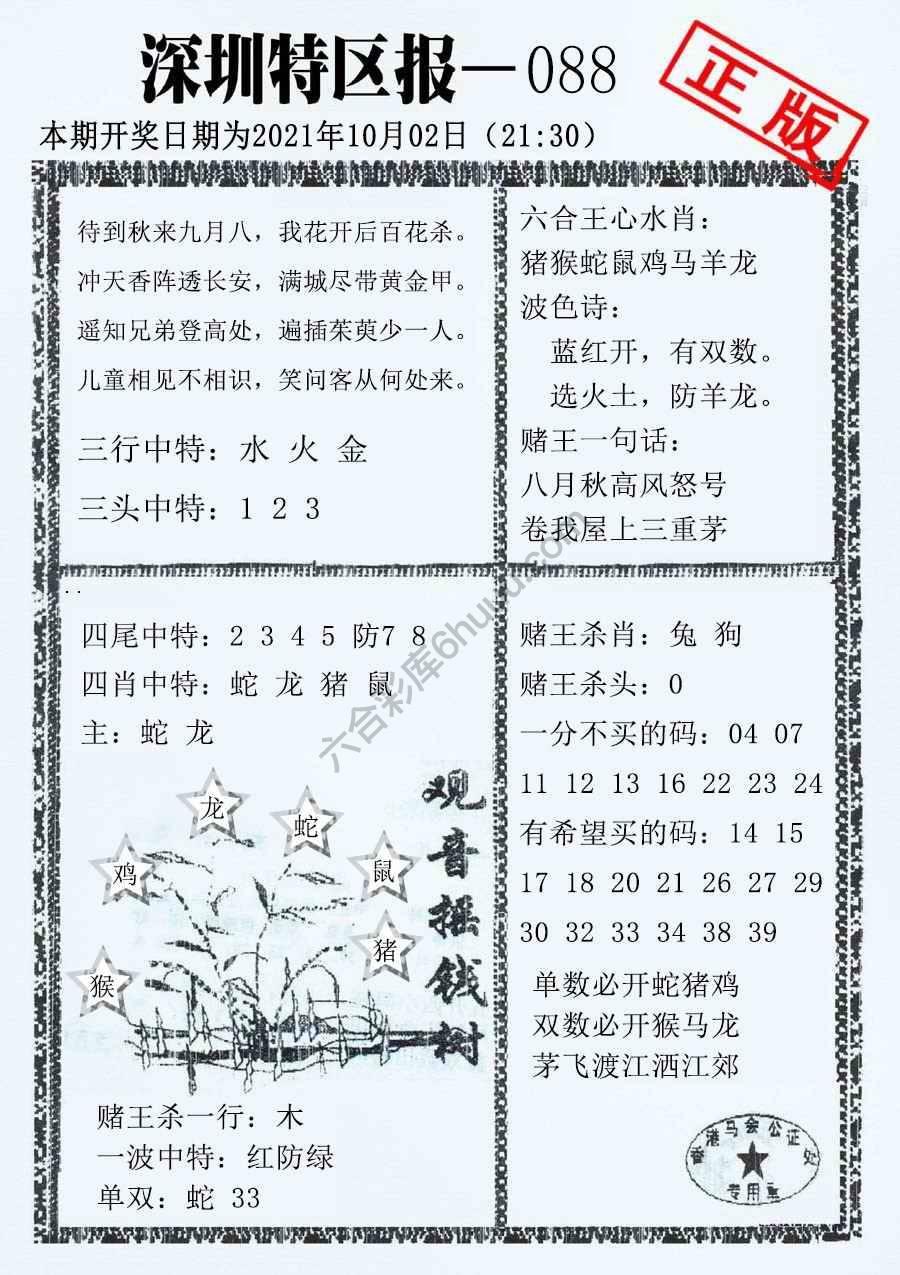 深圳特区报—088
正版
本期开奖日期为2021年10月02日（21:30）
待到秋来九月八，我花开后百花杀。
冲天香阵透长安，满城尽带黄金甲。
遥知兄弟登高处，遍插茱萸少一人。
儿童相见不相识，笑问客从何处来。
三行中特：水 火 金
三头中特：1 2 3
六合王心水肖：
猪猴蛇鼠鸡马羊龙
波色诗：
蓝红开，有双数。
选火土，防羊龙。
赌王一句话：
八月秋高风怒号
卷我屋上三重茅
六合彩库6huku.com
四尾中特：2 3 4 5 防7 8
四肖中特：蛇 龙 猪 鼠
主：蛇 龙
龙
蛇
鸡
鼠
猪
猴
观音摇钱树
赌王杀一行：木
一波中特：红防绿
单双：蛇 33
赌王杀肖：兔 狗
赌王杀头：0
一分不买的码：04 07
11 12 13 16 22 23 24
有希望买的码：14 15
17 18 20 21 26 27 29
30 32 33 34 38 39
单数必开蛇猪鸡
双数必开猴马龙
茅飞渡江洒江郊
香港马会公证处
专用章